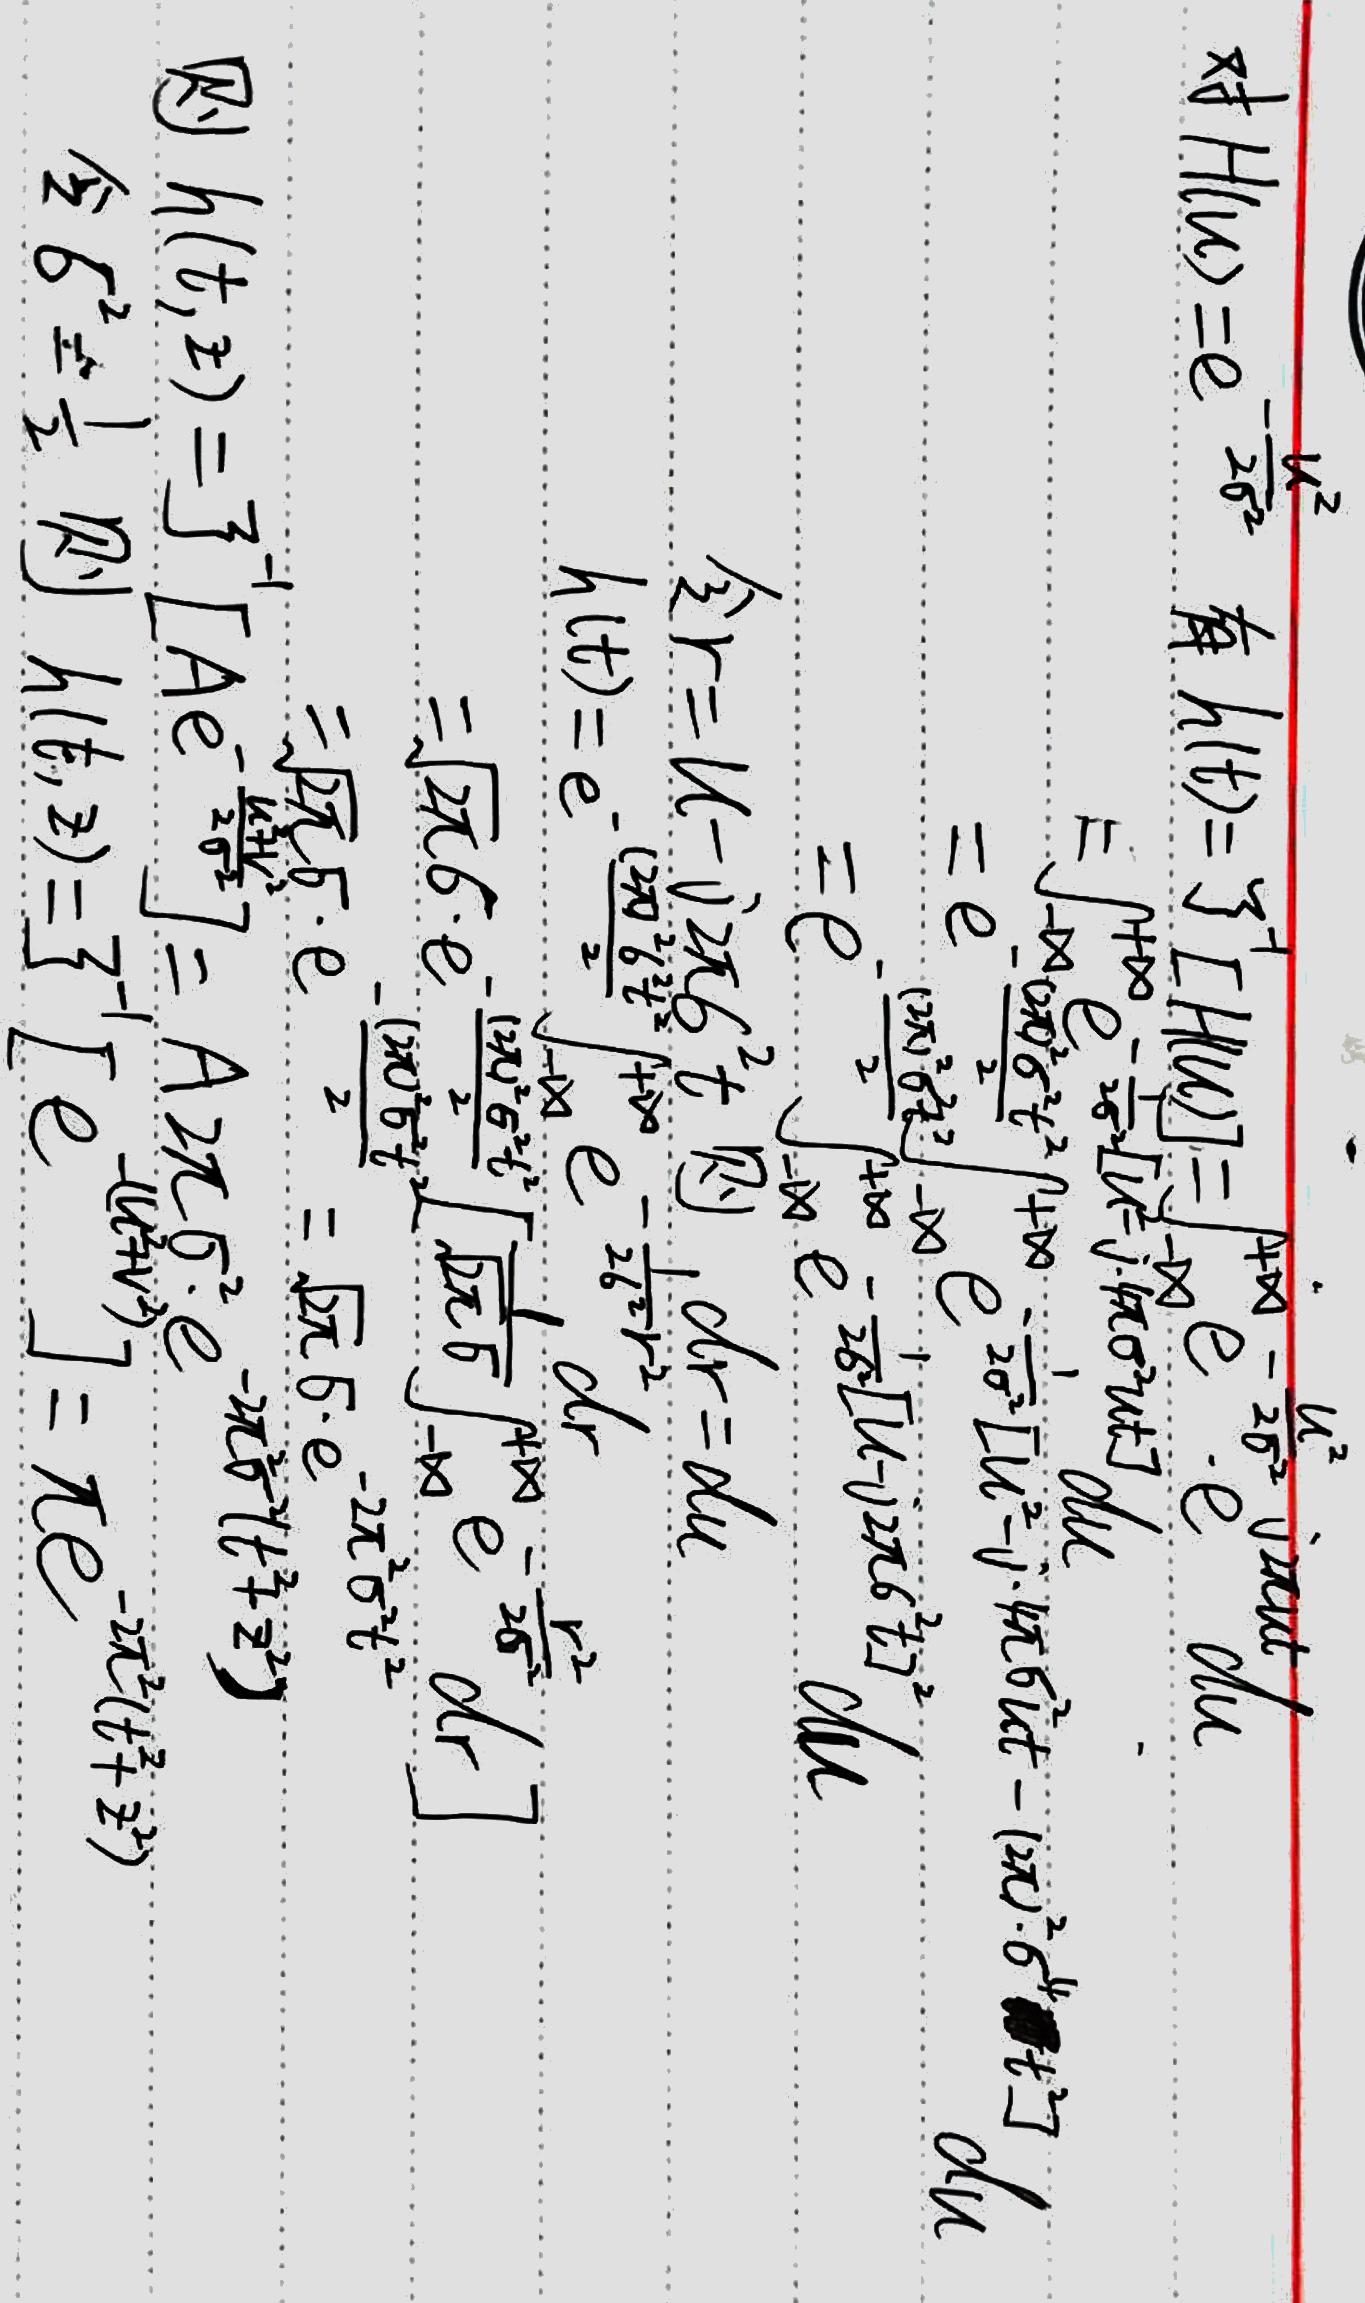 对 H(u) = e^{-\frac{u^2}{2σ^2}} 有 h(t) = ℑ^{-1}[H(u)] = ∫_{-∞}^{+∞} e^{-\frac{u^2}{2σ^2}} · e^{j2πut} du
= ∫_{-∞}^{+∞} e^{-\frac{1}{2σ^2}[u^2 - j·4πσ^2ut]} du
= e^{-\frac{(2π)^2σ^2t^2}{2}} ∫_{-∞}^{+∞} e^{-\frac{1}{2σ^2}[u^2 - j·4πσ^2ut - (2π)^2·σ^4t^2]} du
= e^{-\frac{(2π)^2σ^2t^2}{2}} ∫_{-∞}^{+∞} e^{-\frac{1}{2σ^2}[u - j2πσ^2t]^2} du
令 r = u - j2πσ^2t 则 dr = du
h(t) = e^{-\frac{(2π)^2σ^2t^2}{2}} ∫_{-∞}^{+∞} e^{-\frac{1}{2σ^2}r^2} dr
= \sqrt{2π}σ · e^{-\frac{(2π)^2σ^2t^2}{2}} [\frac{1}{\sqrt{2π}σ} ∫_{-∞}^{+∞} e^{-\frac{r^2}{2σ^2}} dr]
= \sqrt{2π}σ · e^{-\frac{(2π)^2σ^2t^2}{2}} = \sqrt{2π}σ · e^{-2π^2σ^2t^2}
则 h(t,z) = ℑ^{-1}[Ae^{-\frac{u^2+v^2}{2σ^2}}] = A2πσ^2 · e^{-2π^2σ^2(t^2+z^2)}
令 σ^2 = \frac{1}{2} 则 h(t,z) = ℑ^{-1}[e^{-(u^2+v^2)}] = πe^{-2π^2(t^2+z^2)}